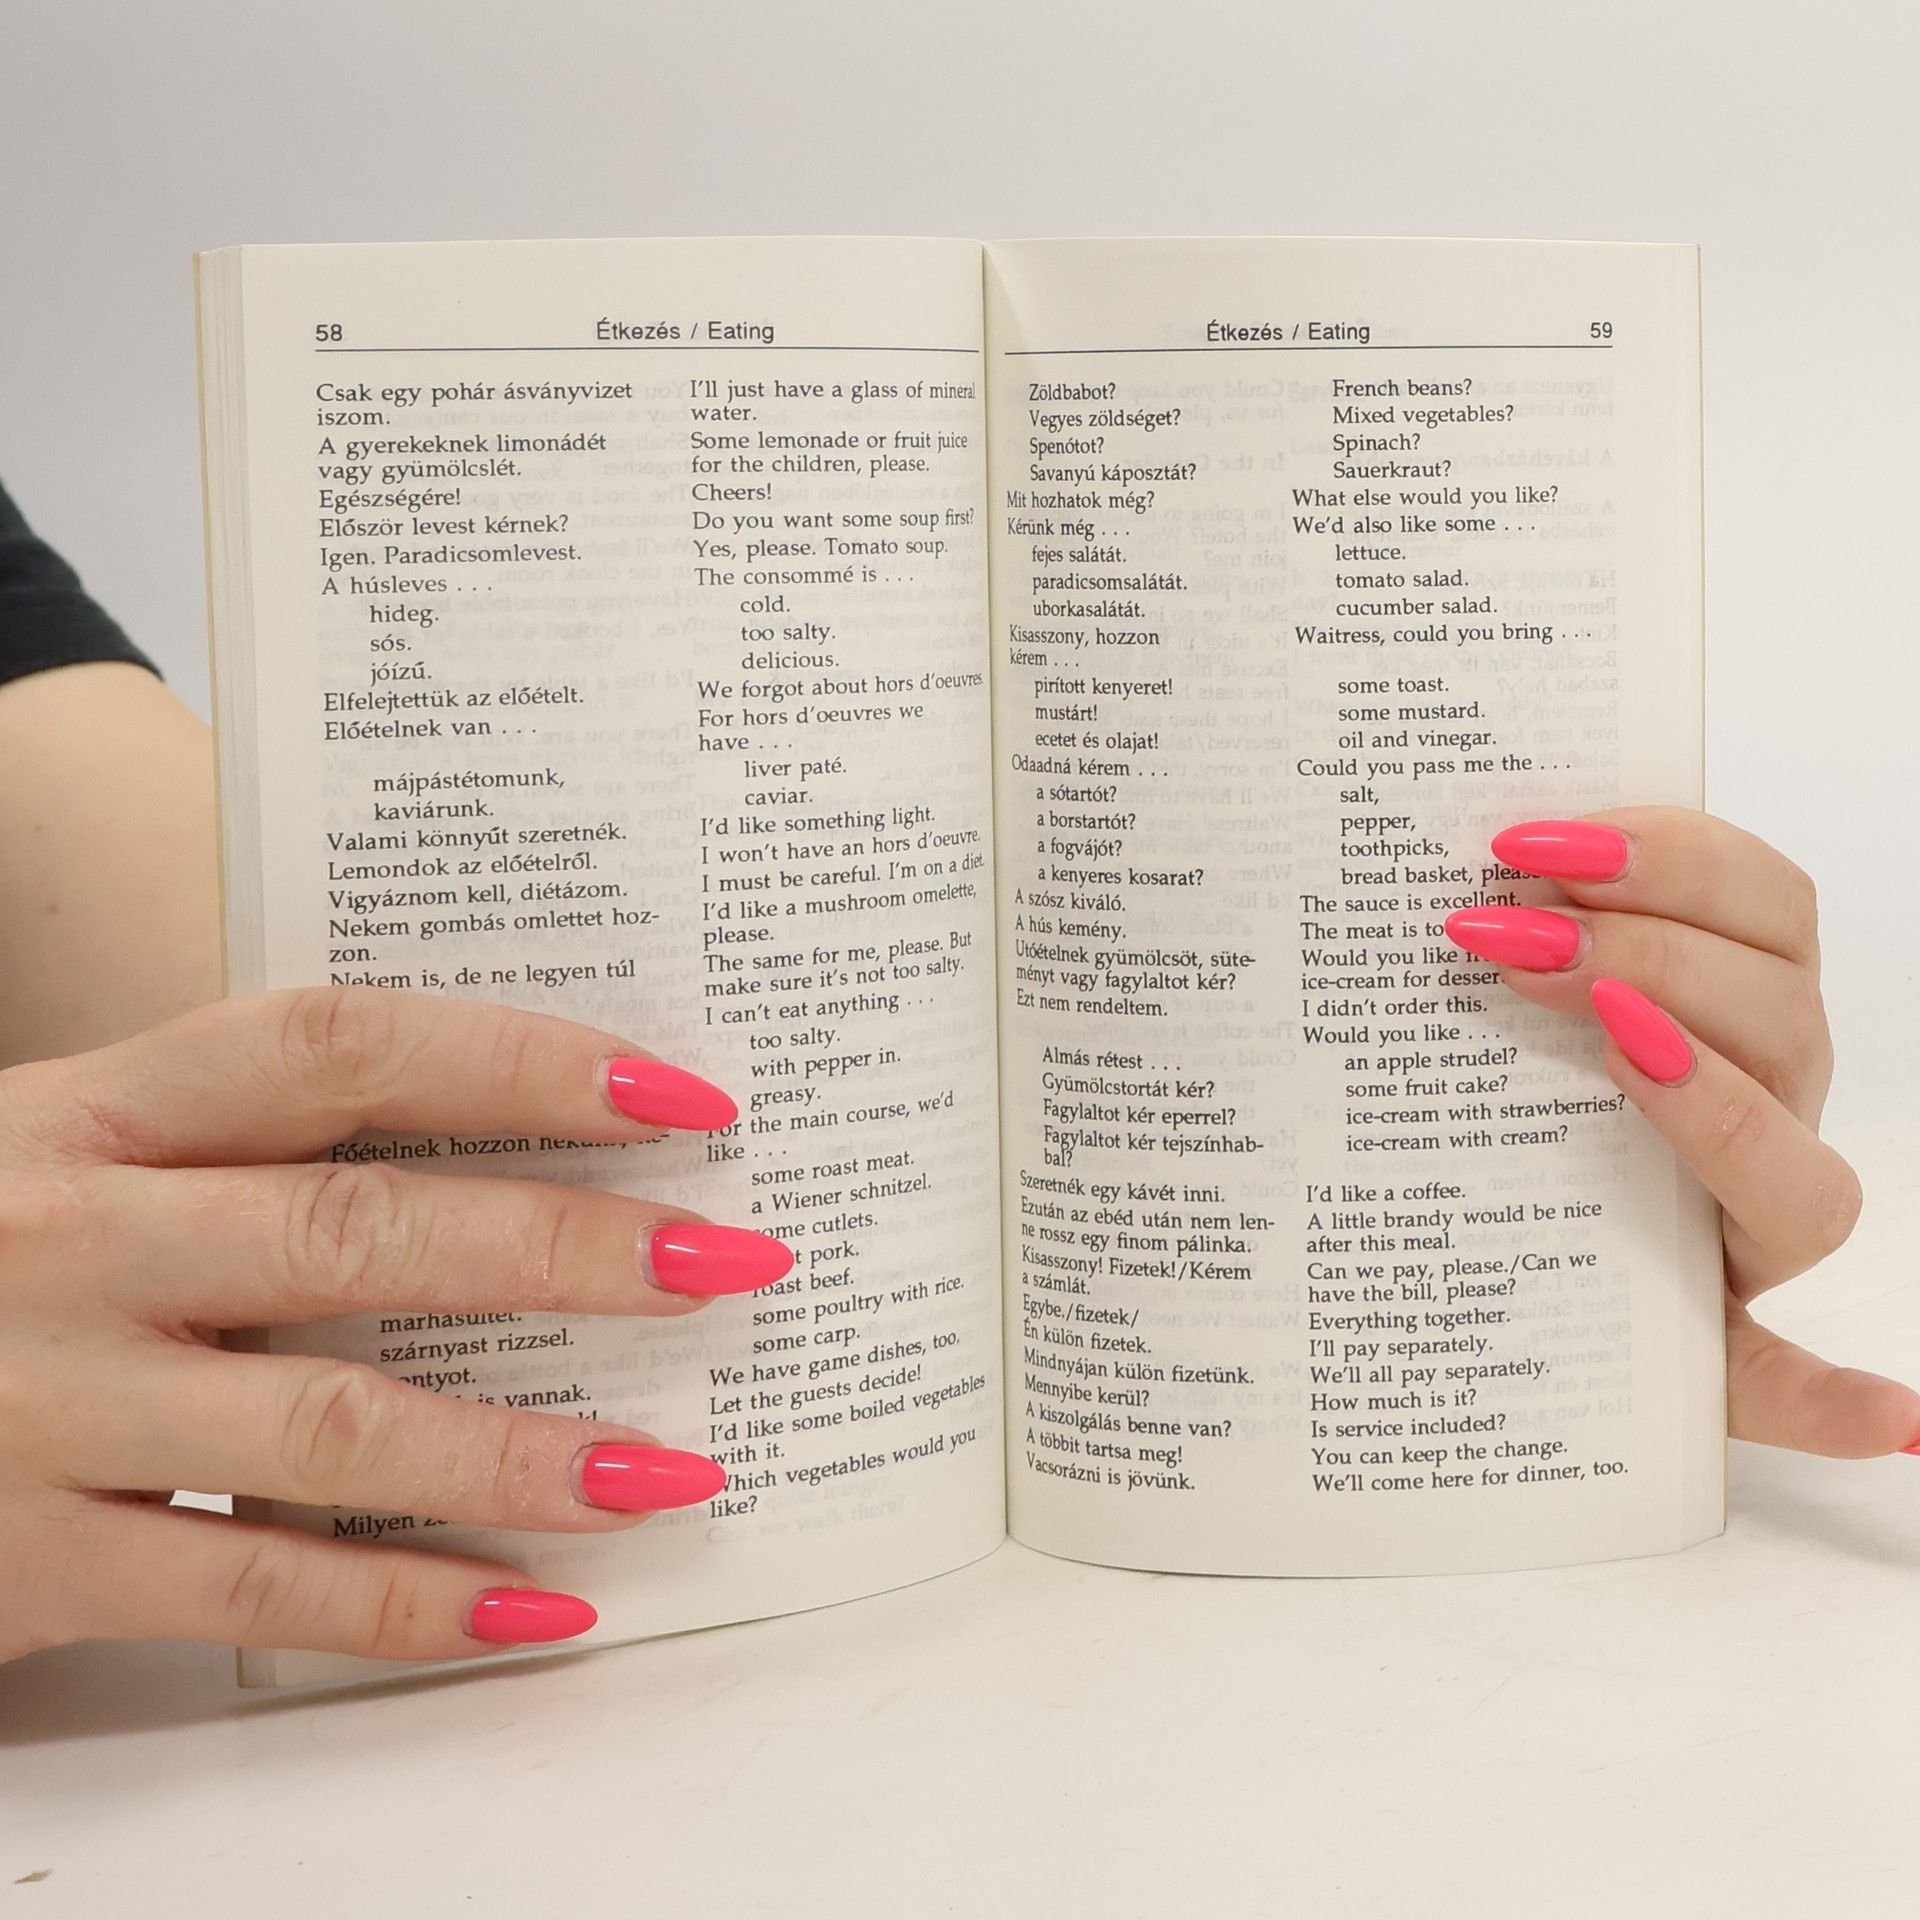 58
Étkezés / Eating
Csak egy pohár ásványvizet
iszom.
A gyerekeknek limonádét
vagy gyümölcslét.
Egészségére!
Először levest kérnek?
Igen. Paradicsomlevest.
A húsleves . . .
hideg.
sós.
jóízű.
Elfelejtettük az előételt.
Előételnek van . . .
májpástétomunk,
kaviárunk.
Valami könnyűt szeretnék.
Lemondok az előételről.
Vigyáznom kell, diétázom.
Nekem gombás omlettet hoz-
zon.
Nekem is, de ne legyen túl
Főételnek hozzon
marhasültet.
szárnyast rizzsel.
is vannak.
Milyen
I'll just have a glass of mineral
water.
Some lemonade or fruit juice
for the children, please.
Cheers!
Do you want some soup first?
Yes, please. Tomato soup.
The consommé is . . .
cold.
too salty.
delicious.
We forgot about hors d'oeuvres.
For hors d'oeuvres we
have . . .
liver paté.
caviar.
I'd like something light.
I won't have an hors d'oeuvre.
I must be careful. I'm on a diet.
I'd like a mushroom omelette,
please.
The same for me, please. But
make sure it's not too salty.
I can't eat anything . . .
too salty.
with pepper in.
greasy.
For the main course, we'd
like . . .
some roast meat.
a Wiener schnitzel.
some cutlets.
pork.
roast beef.
some poultry with rice.
some carp.
We have game dishes, too.
Let the guests decide!
I'd like some boiled vegetables
with it.
Which vegetables would you
like?
Étkezés / Eating
59
Zöldbabot?
Vegyes zöldséget?
Spenótot?
Savanyú káposztát?
Mit hozhatok még?
Kérünk még . . .
fejes salátát.
paradicsomsalátát.
uborkasalátát.
Kisasszony, hozzon
kérem . . .
pirított kenyeret!
mustárt!
ecetet és olajat!
Odaadná kérem . . .
a sótartót?
a borstartót?
a fogvájót?
a kenyeres kosarat?
A szósz kiváló.
A hús kemény.
Utóételnek gyümölcsöt, süte-
ményt vagy fagylaltot kér?
Ezt nem rendeltem.
Almás rétest . . .
Gyümölcstortát kér?
Fagylaltot kér eperrel?
Fagylaltot kér tejszínhab-
bal?
Szeretnék egy kávét inni.
Ezután az ebéd után nem len-
ne rossz egy finom pálinka.
Kisasszony! Fizetek!/Kérem
a számlát.
Egybe./fizetek/
Én külön fizetek.
Mindnyájan külön fizetünk.
Mennyibe kerül?
A kiszolgálás benne van?
A többit tartsa meg!
Vacsorázni is jövünk.
French beans?
Mixed vegetables?
Spinach?
Sauerkraut?
What else would you like?
We'd also like some . . .
lettuce.
tomato salad.
cucumber salad.
Waitress, could you bring . . .
some toast.
some mustard.
oil and vinegar.
Could you pass me the . . .
salt,
pepper,
toothpicks,
bread basket, please
The sauce is excellent.
The meat is
Would you like
ice-cream for dessert
I didn't order this.
Would you like . . .
an apple strudel?
some fruit cake?
ice-cream with strawberries?
ice-cream with cream?
I'd like a coffee.
A little brandy would be nice
after this meal.
Can we pay, please./Can we
have the bill, please?
Everything together.
I'll pay separately.
We'll all pay separately.
How much is it?
Is service included?
You can keep the change.
We'll come here for dinner, too.